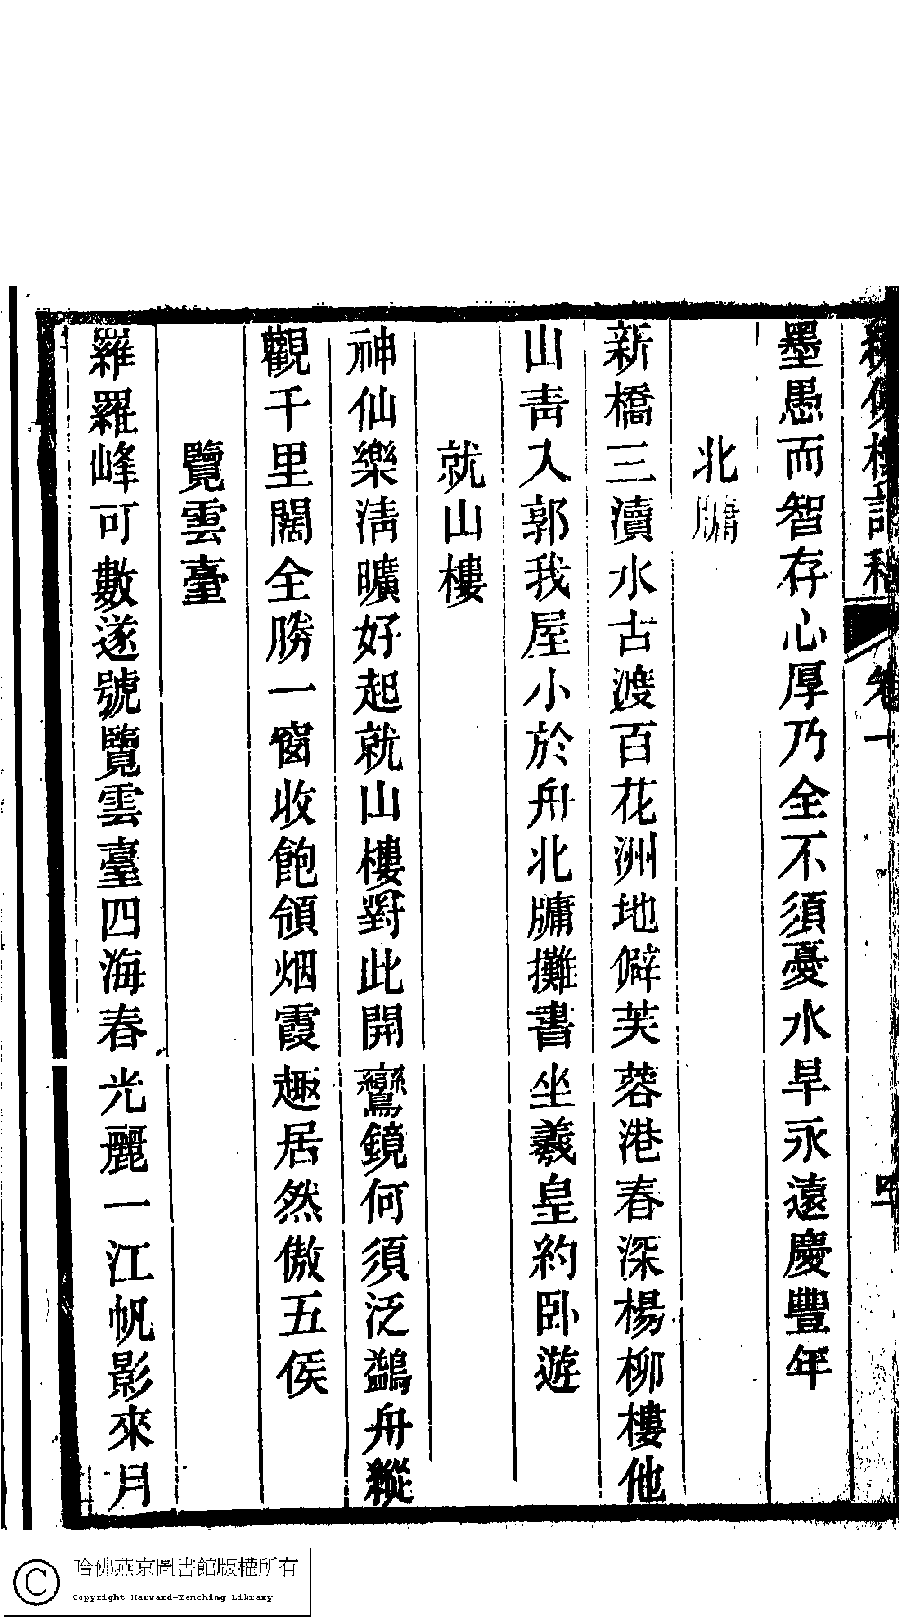 樓詩稿 卷一
墨愚而智存心厚乃全不須憂水旱永遠慶豐年
北牗
新橋三瀆水古渡百花洲地僻芙蓉港春深楊柳樓他
山青入郭我屋小於舟北牗攤書坐羲皇約卧遊
就山樓
神仙樂清曠好起就山樓對此開鸞鏡何須泛鷁舟縱
觀千里闊全勝一窗收飽領烟霞趣居然傲五侯
覽雲臺
羅羅峰可數遂號覽雲臺四海春光麗一江帆影來月
哈佛燕京圖書館版權所有
Copyright Harvard-Yenching Library